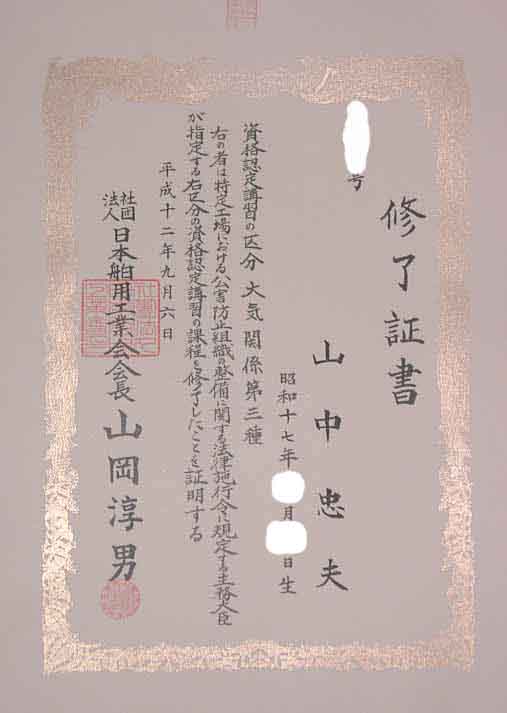 修了証書
号
山中忠夫
昭和十七年 月 日生
資格認定講習の区分 大気関係第三種
右の者は特定工場における公害防止組織の整備に関する法律施行令に規定する主務大臣
が指定する右区分の資格認定講習の課程を修了したことを証明する
平成十二年九月六日
社団法人 日本舶用工業会会長 山岡淳男